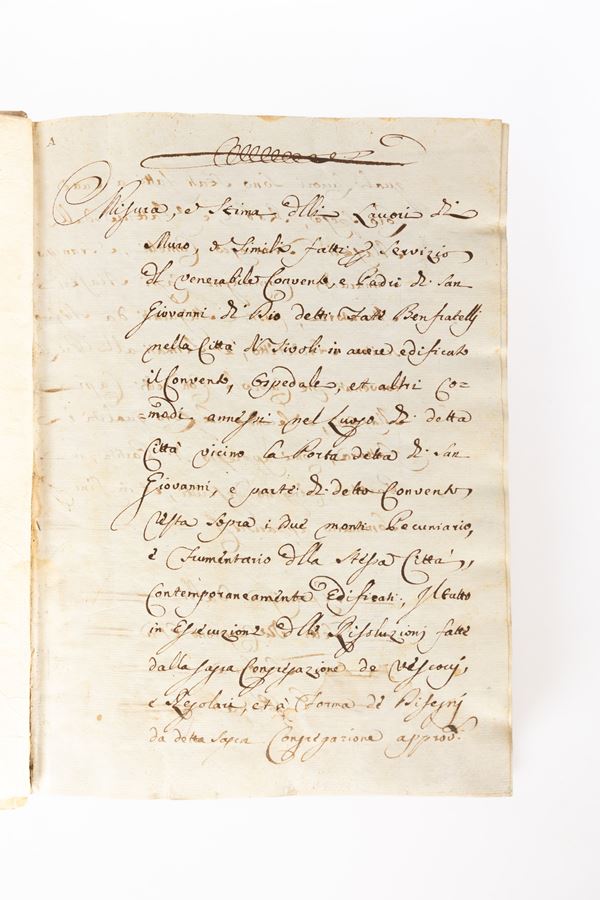 A
Misura, et Stima delli Lavori di
Muro, et Simili fatti p Servizio
dl venerabile Convento, e Padri di San
Giovanni di Dio detti Fate Benfratelli
nella Città di Tivoli in avere edificato
il Convento, Ospedale, et altri Co=
=modi annessi nel Luogo di detta
Città vicino la Porta detta di San
Giovanni, e parte di detto Convento
resta sopra i due monti Pecuniario,
e Frumentario dlla stessa Città,
Contemporaneamente Edificati; Il tutto
in Essecuzione dlle Risoluzioni fatte
dalla sagra Congregazione de Vescovj,
e Regolari, et à Forma de Disegnj
da detta sagra Congregazione approv.